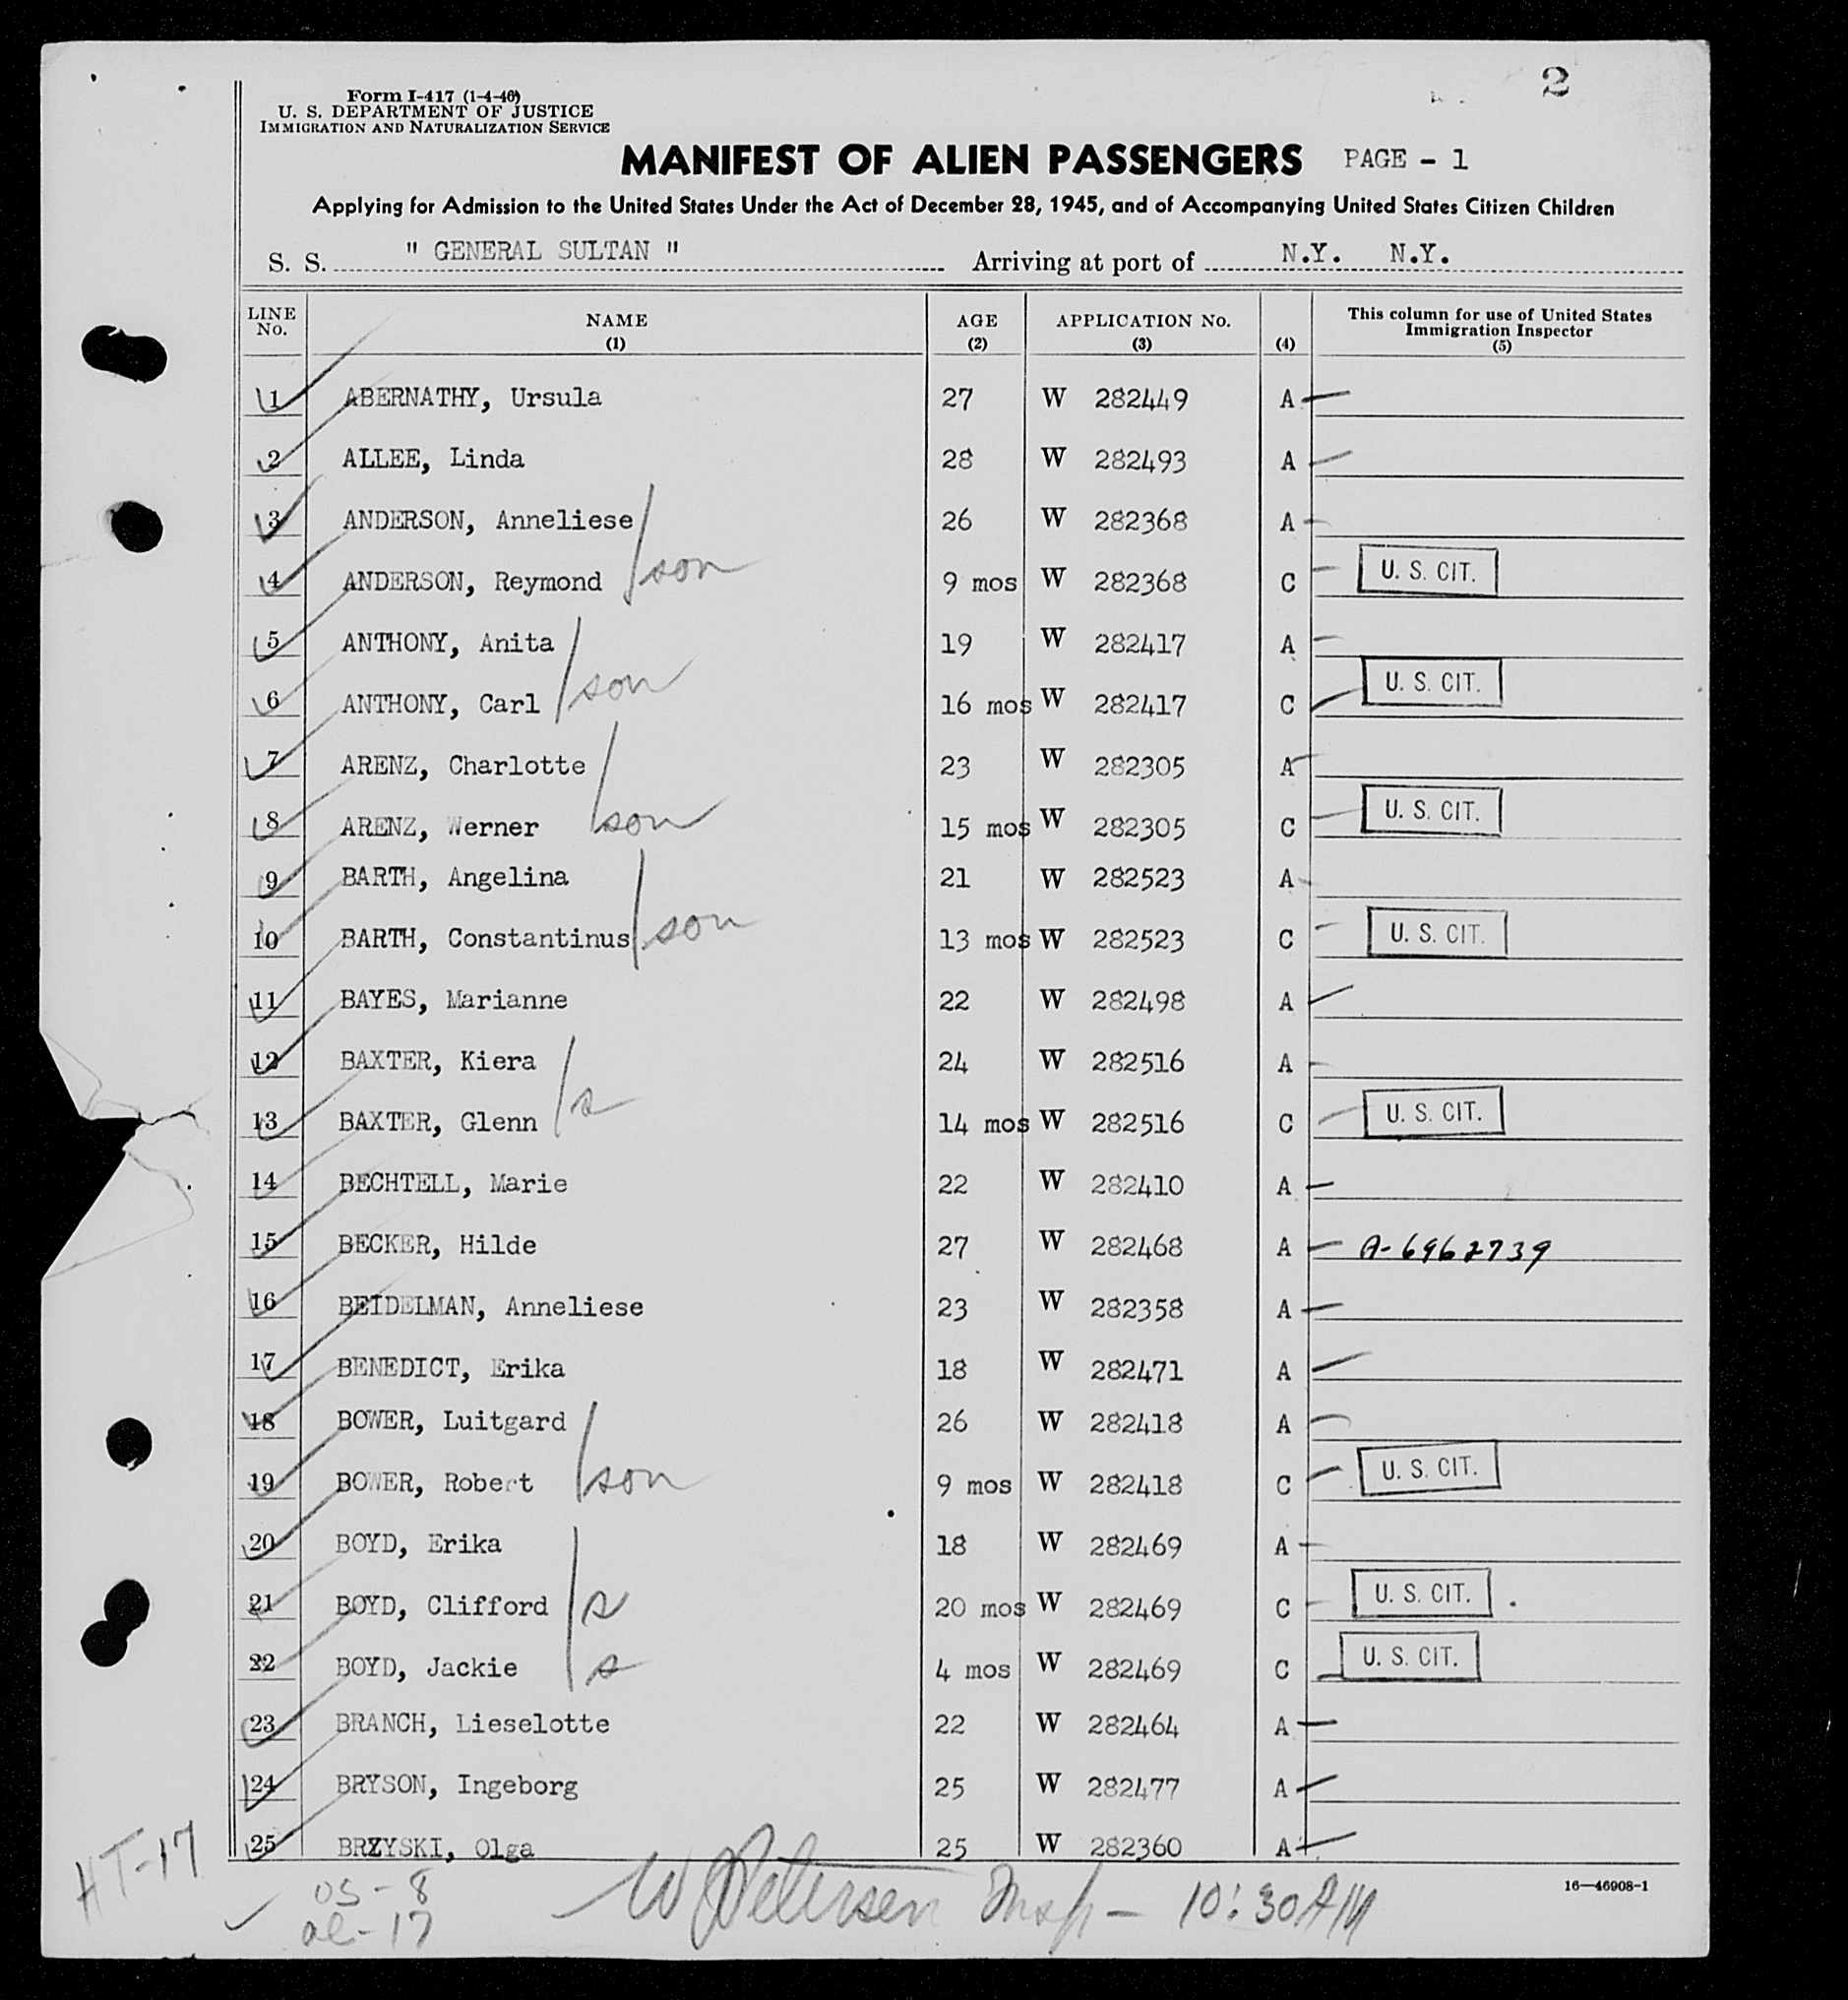 2
Form I-417 (1-4-46)
U. S. DEPARTMENT OF JUSTICE
IMMIGRATION AND NATURALIZATION SERVICE
MANIFEST OF ALIEN PASSENGERS PAGE - 1
Applying for Admission to the United States Under the Act of December 28, 1945, and of Accompanying United States Citizen Children
S. S. " GENERAL SULTAN " Arriving at port of N.Y. N.Y.
LINE No. NAME (1) AGE (2) APPLICATION No. (3) (4) This column for use of United States Immigration Inspector (5)
1 ABERNATHY, Ursula 27 W 282449 A
2 ALLEE, Linda 28 W 282493 A
3 ANDERSON, Anneliese 26 W 282368 A
4 ANDERSON, Reymond son 9 mos W 282368 C U. S. CIT.
5 ANTHONY, Anita 19 W 282417 A
6 ANTHONY, Carl son 16 mos W 282417 C U. S. CIT.
7 ARENZ, Charlotte 23 W 282305 A
8 ARENZ, Werner son 15 mos W 282305 C U. S. CIT.
9 BARTH, Angelina 21 W 282523 A
10 BARTH, Constantinus son 13 mos W 282523 C U. S. CIT.
11 BAYES, Marianne 22 W 282498 A
12 BAXTER, Kiera 24 W 282516 A
13 BAXTER, Glenn s 14 mos W 282516 C U. S. CIT.
14 BECHTELL, Marie 22 W 282410 A
15 BECKER, Hilde 27 W 282468 A A-6962739
16 BEIDELMAN, Anneliese 23 W 282358 A
17 BENEDICT, Erika 18 W 282471 A
18 BOWER, Luitgard 26 W 282418 A
19 BOWER, Robert son 9 mos W 282418 C U. S. CIT.
20 BOYD, Erika 18 W 282469 A
21 BOYD, Clifford s 20 mos W 282469 C U. S. CIT.
22 BOYD, Jackie s 4 mos W 282469 C U. S. CIT.
23 BRANCH, Lieselotte 22 W 282464 A
24 BRYSON, Ingeborg 25 W 282477 A
25 BRZYSKI, Olga 25 W 282360 A
HT-17
US - 8
al - 17
W Petersen Insp - 10:30 AM
16—46908-1